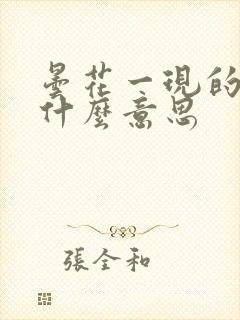 曇花一現的
什麼意思
張全和